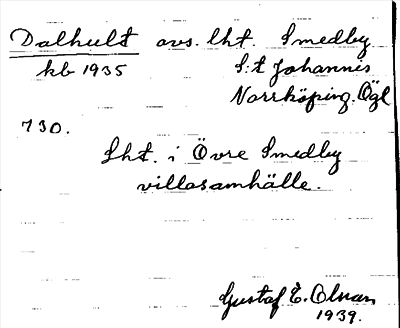 Dalhult avs. lht. Smedby
kb 1935 S:t Johannis
Norrköping. Ögl
730.
Lht. i Övre Smedby
villasamhälle.
Gustaf E. Olvan
1939.